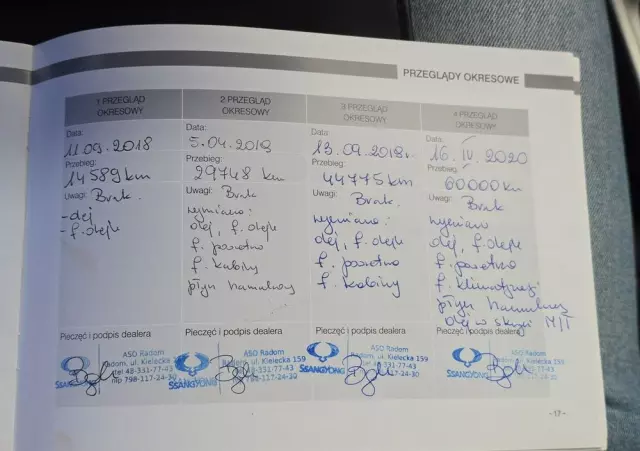 PRZEGLĄDY OKRESOWE
1 PRZEGLĄD
OKRESOWY
Data:
11.09.2018
Przebieg:
14589 km
Uwagi: Brak.
- olej
- f. oleju
Pieczęć i podpis dealera
SSANGYONG
ASO Radom
Radom, ul. Kielecka 159
tel 48-331-77-43
nip 798-117-24-30
2 PRZEGLĄD
OKRESOWY
Data:
5.04.2019
Przebieg:
29748 km
Uwagi: Brak
wymiano:
olej, f. oleju
f. powietrza
f. kabiny
płyn hamulcowy
Pieczęć i podpis dealera
SSANGYONG
ASO Radom
Radom, ul. Kielecka 159
tel 48-331-77-43
nip 798-117-24-30
3 PRZEGLĄD
OKRESOWY
Data:
13.09.2019r.
Przebieg:
44775 km
Uwagi: Brak.
wymiano:
olej, f. oleju
f. powietrza
f. kabiny
Pieczęć i podpis dealera
SSANGYONG
ASO Radom
Radom, ul. Kielecka 159
tel 48-331-77-43
nip 798-117-24-30
4 PRZEGLĄD
OKRESOWY
Data:
16.IV.2020
Przebieg:
60000 km
Uwagi: Brak.
wymiano
olej, f. oleju
f. powietrza
f. klimatyzacji
płyn hamulcowy
olej w skrzyni M/T
Pieczęć i podpis dealera
SSANGYONG
ASO Radom
Radom, ul. Kielecka 159
tel 48-331-77-43
nip 798-117-24-30
-17-